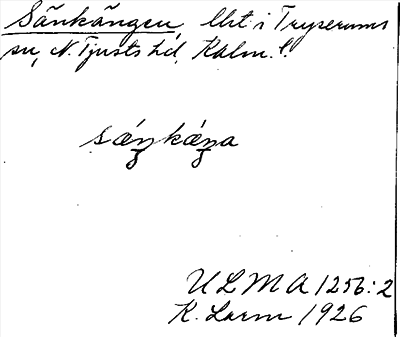 Sänkängen, lht i Tryserums
sn, N. Tjusts hd, Kalm. l.
sæŋkæŋa
ULMA 1256:2
K. Larm 1926